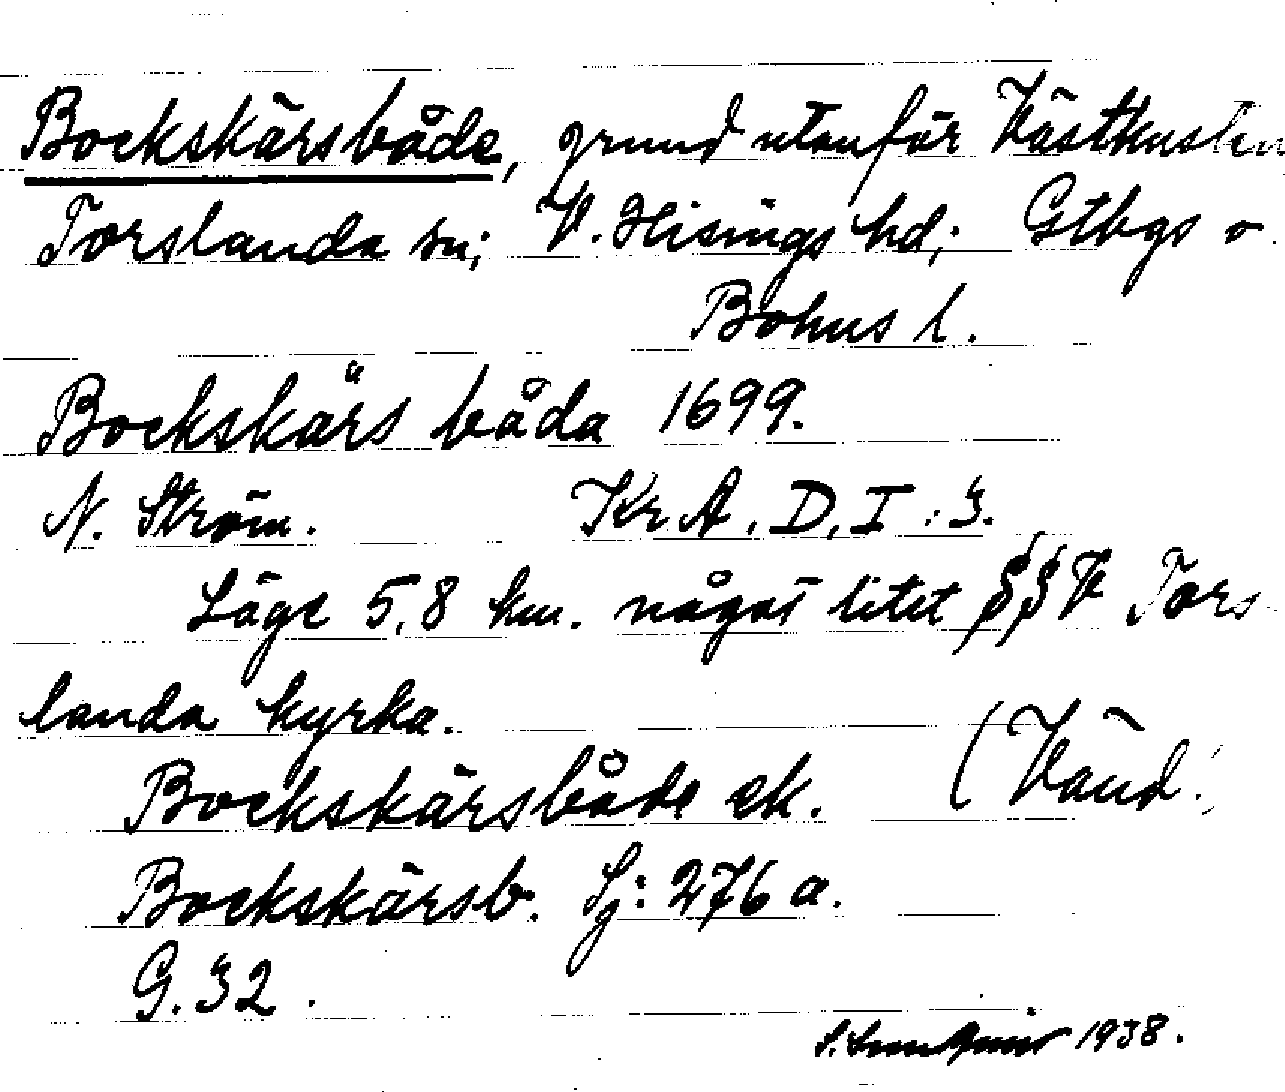 Bockskärsbåde, grund utanför Västkusten
Torslanda sn; V. Hisings hd; Gtbgs o
Bohus l.
Bockskärs båda 1699.
N. Ström. KrA. D. I : 3.
Läge 5,8 km. något litet SSV Tors
landa kyrka.
Bockskärsbåde ek. (Vänd!
Bockskärsb. Sj: 276 a.
G. 32.
1938.